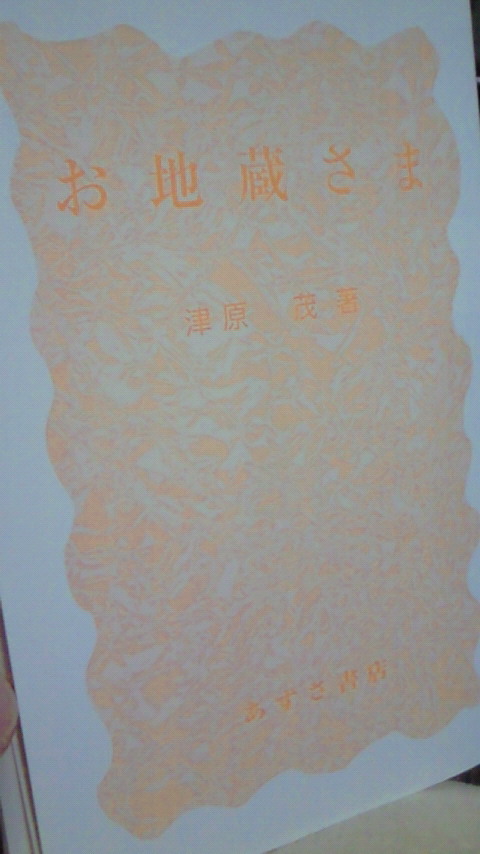 お地蔵さま
津原 茂著
あずさ書店